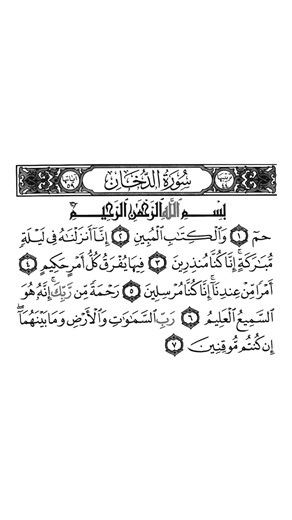 سُورَةُ الدُّخَانِ
بِسْمِ اللَّهِ الرَّحْمَٰنِ الرَّحِيمِ
حمٓ ﴿١﴾ وَالْكِتَابِ الْمُبِينِ ﴿٢﴾ إِنَّآ أَنزَلْنَاهُ فِى لَيْلَةٍ
مُّبَارَكَةٍ إِنَّا كُنَّا مُنذِرِينَ ﴿٣﴾ فِيهَا يُفْرَقُ كُلُّ أَمْرٍ حَكِيمٍ ﴿٤﴾
أَمْرًا مِّنْ عِندِنَآ إِنَّا كُنَّا مُرْسِلِينَ ﴿٥﴾ رَحْمَةً مِّن رَّبِّكَ إِنَّهُ هُوَ
السَّمِيعُ الْعَلِيمُ ﴿٦﴾ رَبِّ السَّمَاوَاتِ وَالْأَرْضِ وَمَا بَيْنَهُمَآ
إِن كُنتُم مُّوقِنِينَ ﴿٧﴾